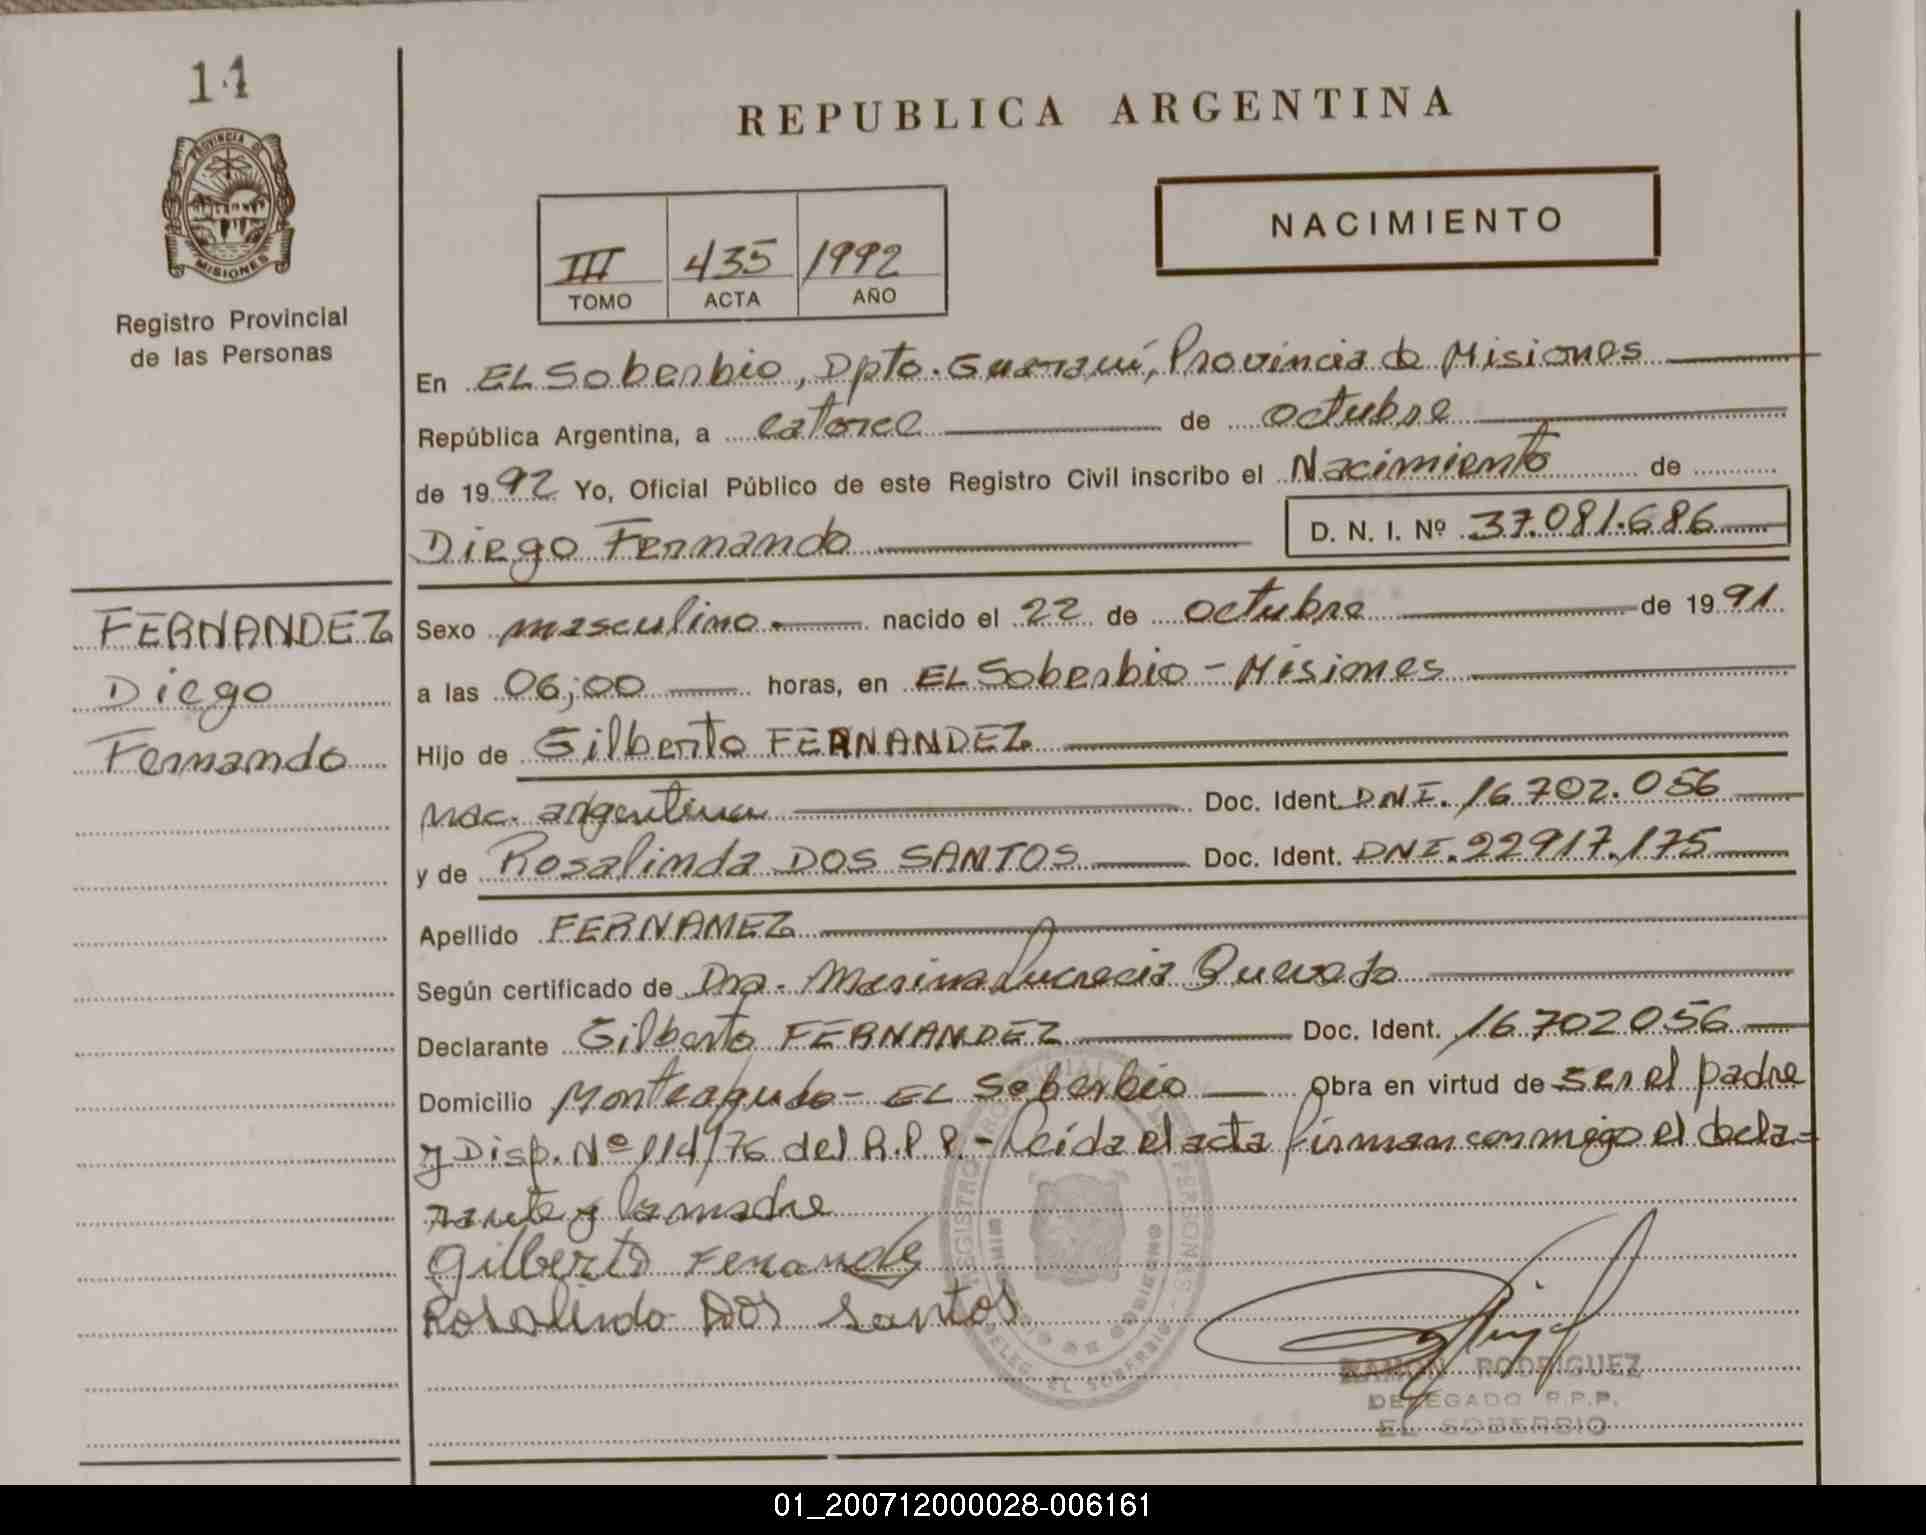 14
PROVINCIA DE
MISIONES
Registro Provincial
de las Personas
REPUBLICA ARGENTINA
NACIMIENTO
III 435 1992
TOMO ACTA AÑO
En El Soberbio, Dpto. Guaraní, Provincia de Misiones
República Argentina, a catorce de octubre
de 1992 Yo, Oficial Público de este Registro Civil inscribo el Nacimiento de
Diego Fernando D. N. I. Nº 37.081.686
FERNANDEZ
Diego
Fernando
Sexo masculino.- nacido el 22 de octubre de 1991
a las 06,00 horas, en El Soberbio - Misiones
Hijo de Gilberto FERNANDEZ
nac. argentina Doc. Ident. DNI. 16.702.056
y de Rosalinda DOS SANTOS Doc. Ident. DNI. 22917.175
Apellido FERNAMEZ
Según certificado de Dra. Marina Lucrecia Quevedo
Declarante Gilberto FERNANDEZ Doc. Ident. 16702056
Domicilio Monteagudo - El Soberbio Obra en virtud de ser el padre
y Disp. Nº 114/76 del R.P.P. - Leida el acta firman conmigo el decla=
rante y la madre
Gilberto Fernandes
Rosalindo DOS Santos
RAMON RODRIGUEZ
DELEGADO R.P.P.
EL SOBERBIO
01_200712000028-006161